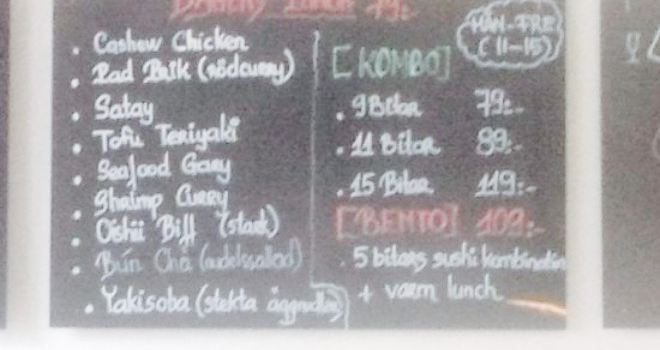 Lunch 79:-
• Cashew Chicken
• Pad Prik (rödcurry)
• Satay
• Tofu Teriyaki
• Seafood Gary
• Shrimp Curry
• Oishii Biff (stark)
• Bún Chá (nudelsallad)
• Yakisoba (stekta äggnudlar)
MÅN-FRE
(11-15)
[KOMBO]
• 9 Bitar 79:-
• 11 Bitar 89:-
• 15 Bitar 119:-
[BENTO] 109:-
• 5 bitars sushi kombination
+ varm lunch